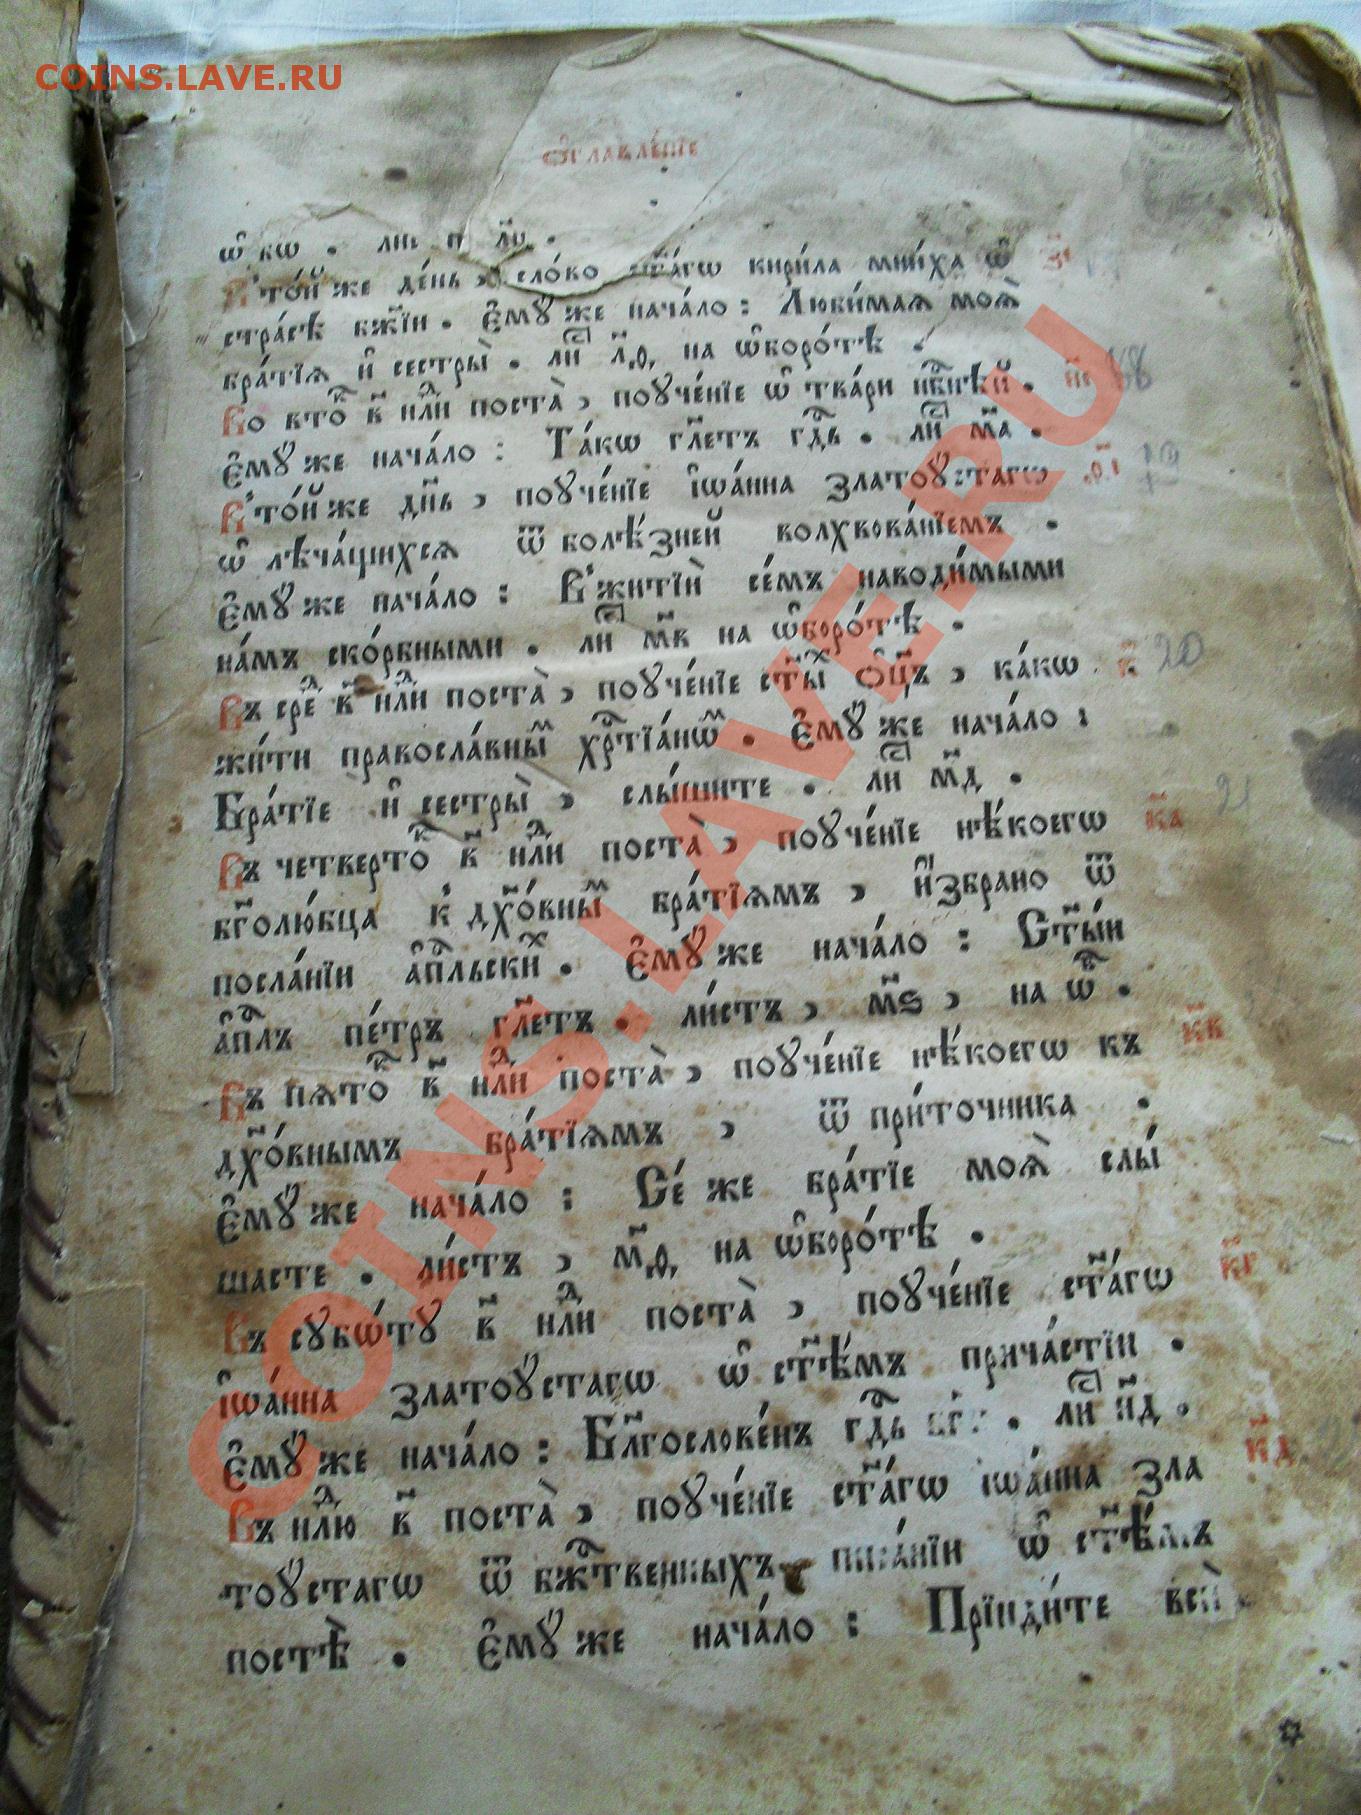 COINS.LAVE.RU
ѡ҆главле́нїе
В̾ то́йже де́нь, сло́во ст҃а́гѡ кири́ла мни́ха ѡ҆
стра́сѣ бж҃їи. є҆му́же нача́ло: Люби́маѧ моѧ̀
бра́тїѧ и҆ сестры̀. ли҇ л҃ѳ, на ѡ҆боро́тѣ.
Во вто҇к҃ в҃ нлⷣи поста̀, поуче́нїе ѡ҆ тва́ри нб҇нѣй. и҃і 18
є҆му́же нача́ло: Та́кѡ гл҃етъ гдⷭ҇ь. ли҇ м҃а.
В̾ то́йже дн҃ь, поуче́нїе і҆ѡа́нна златоу́стагѡ ѳ҃і 19
ѡ҆ лѣча́щихсѧ ѿ болѣ́зней волхвова́нїемъ.
є҆му́же нача́ло: В̾ житїѝ се́мъ наводи́мыми
на́мъ ско́рбными. ли҇ м҃в на ѡ҆боро́тѣ.
Въ среⷣ в҃ нлⷣи поста̀, поуче́нїе ст҃ыⷯ ѻ҆ц҃ъ, ка́кѡ к҃ 20
жи́ти правосла́вныⷨ хрⷭ҇тїа́нѡⷨ. є҆му́же нача́ло:
Бра́тїе и҆ сестры̀, слы́шите. ли҇ м҃д.
Въ четверто҇к в҃ нлⷣи поста̀, поуче́нїе нѣ́коегѡ к҃а 21
бг҃олю́бца к̾ дх҃о́вныⷨ бра́тїѧмъ, и҆збрано ѿ
посла́нїи а҆пⷭ҇льскиⷯ. є҆му́же нача́ло: Ст҃ы́и
а҆пⷭ҇лъ пе́тръ гл҃етъ. ли́стъ, м҃ѕ, на ѡ҆ⷠ.
Въ пѧто҇к в҃ нлⷣи поста̀, поуче́нїе нѣ́коегѡ къ к҃в
дх҃о́внымъ бра́тїѧмъ, ѿ при́точника.
є҆му́же нача́ло: Се́ же бра́тїе моѧ̀ слы́
шасте. ли́стъ, м҃ѳ, на ѡ҆боро́тѣ.
Въ субѡ́ту в҃ нлⷣи поста̀, поуче́нїе ст҃а́гѡ к҃г
і҆ѡа́нна златоу́стагѡ ѡ҆ ст҃ѣ́мъ прича́стїи.
є҆му́же нача́ло: Бл҃гослове́нъ гдⷭ҇ь . ли҇ н҃д.
Въ нлⷣю в҃ поста̀, поуче́нїе ст҃а́гѡ і҆ѡа́нна зла к҃д
тоу́стагѡ ѿ бжⷭ҇твенныхъ писа́нїи ѡ҆ ст҃ѣ́мъ
постѣ̀. є҆му́же нача́ло: Прїиди́те всѝ
COINS.LAVE.RU